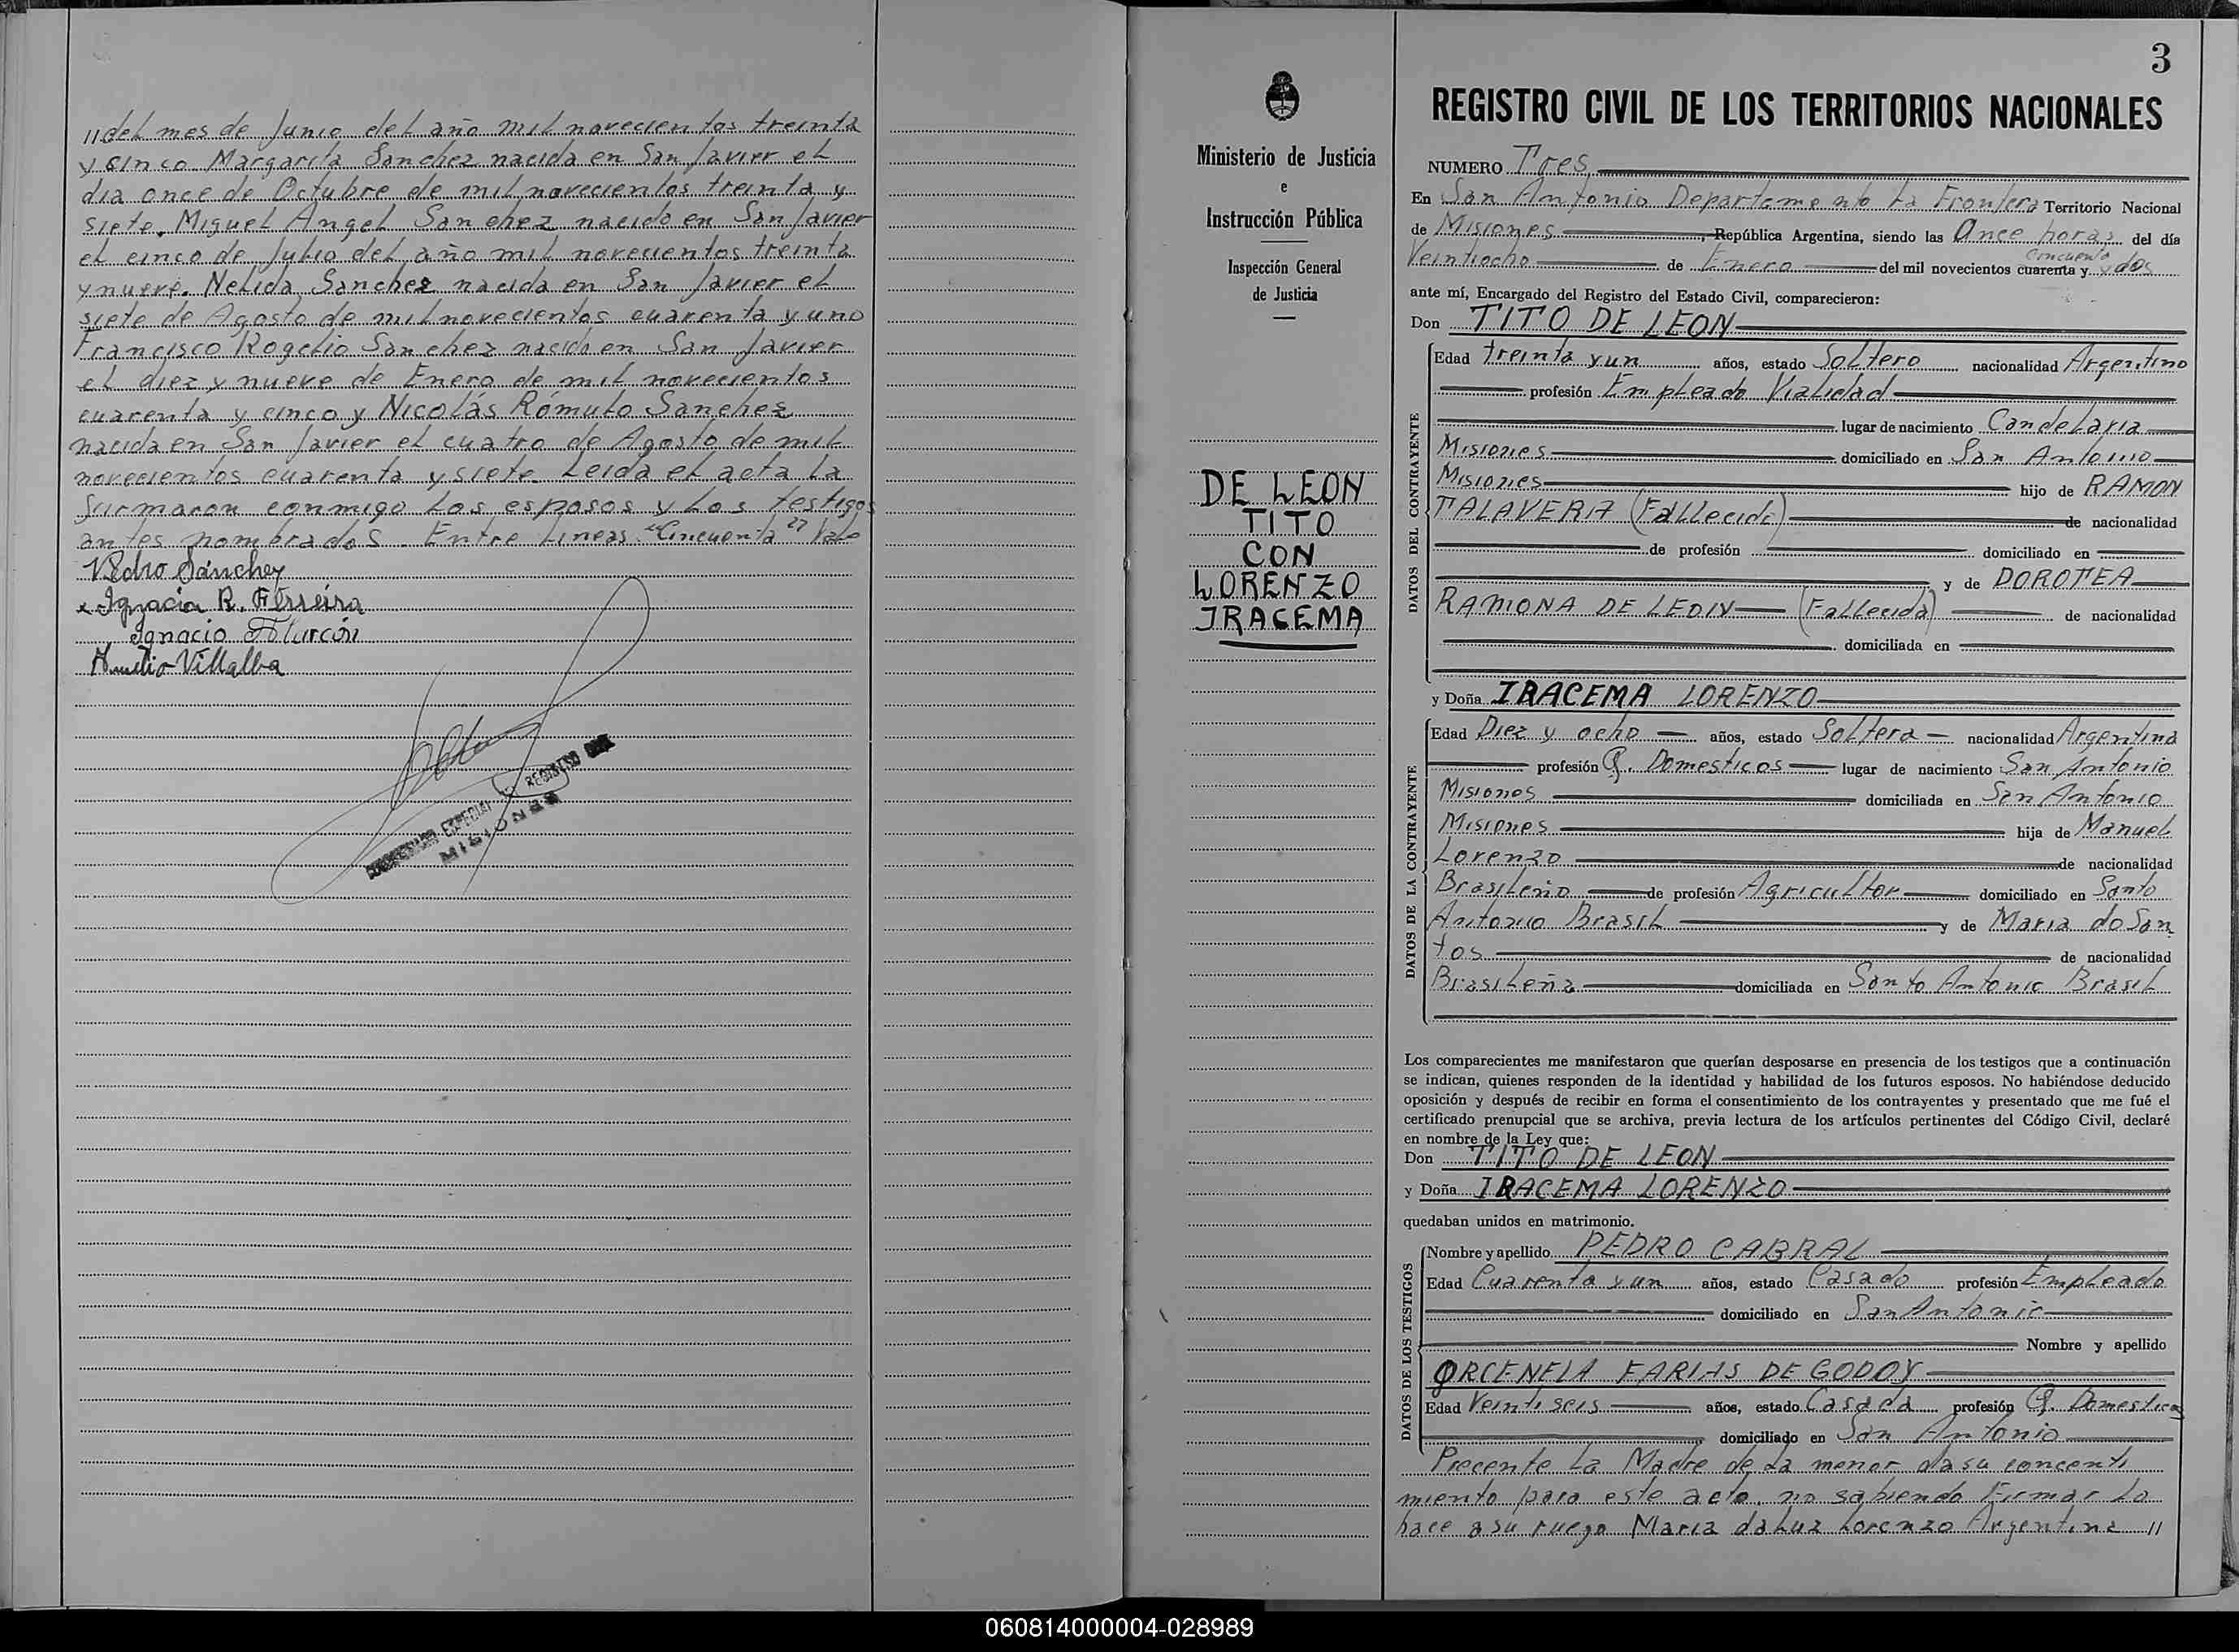 //del mes de Junio del año mil novecientos treinta
y cinco Margarita Sanchez nacida en San Javier el
dia once de Octubre de mil novecientos treinta y
siete. Miguel Angel Sanchez nacido en San Javier
el cinco de Julio del año mil novecientos treinta
y nueve. Nelida Sanchez nacida en San Javier el
siete de Agosto de mil novecientos cuarenta y uno
Francisco Rogelio Sanchez nacido en San Javier
el diez y nueve de Enero de mil novecientos
cuarenta y cinco y Nicolás Rómulo Sanchez
nacida en San Javier el cuatro de Agosto de mil
novecientos cuarenta y siete. Leida el acta la
firmaron conmigo los esposos y los testigos
antes nombrados. Entre Lineas "Cincuenta" Vale
Pedro Sánchez
Ignacia R. Ferreira
Ignacio Alarcón
Amelio Villalba
ESPECIAL REGISTRO
MISIONES
3
Ministerio de Justicia
e
Instrucción Pública
Inspección General
de Justicia
DE LEON
TITO
CON
LORENZO
IRACEMA
REGISTRO CIVIL DE LOS TERRITORIOS NACIONALES
NUMERO Tres
En San Antonio Departamento La Frontera Territorio Nacional
de Misiones, República Argentina, siendo las Once horas del día
Veintiocho de Enero del mil novecientos cuarenta y cincuenta y dos
ante mí, Encargado del Registro del Estado Civil, comparecieron:
Don TITO DE LEON
DATOS DEL CONTRAYENTE
Edad treinta y un años, estado Soltero nacionalidad Argentino
profesión Empleado Vialidad
lugar de nacimiento Candelaria
Misiones domiciliado en San Antonio
Misiones hijo de RAMON
TALAVERA (Fallecido) de nacionalidad
de profesión domiciliado en
y de DOROTEA
RAMONA DE LEON (Fallecida) de nacionalidad
domiciliada en
y Doña IRACEMA LORENZO
DATOS DE LA CONTRAYENTE
Edad Diez y ocho años, estado Soltera nacionalidad Argentina
profesión Q. Domesticos lugar de nacimiento San Antonio
Misiones domiciliada en San Antonio
Misiones hija de Manuel
Lorenzo de nacionalidad
Brasileño de profesión Agricultor domiciliado en Santo
Antonio Brasil y de Maria do San
tos de nacionalidad
Brasileña domiciliada en Santo Antonio Brasil
Los comparecientes me manifestaron que querían desposarse en presencia de los testigos que a continuación
se indican, quienes responden de la identidad y habilidad de los futuros esposos. No habiéndose deducido
oposición y después de recibir en forma el consentimiento de los contrayentes y presentado que me fué el
certificado prenupcial que se archiva, previa lectura de los artículos pertinentes del Código Civil, declaré
en nombre de la Ley que:
Don TITO DE LEON
y Doña IRACEMA LORENZO
quedaban unidos en matrimonio.
DATOS DE LOS TESTIGOS
Nombre y apellido PEDRO CABRAL
Edad Cuarenta y un años, estado Casado profesión Empleado
domiciliado en San Antonio
Nombre y apellido
ORCENELA FARIAS DE GODOY
Edad Veintiseis años, estado Casada profesión Q. Domesticos
domiciliado en San Antonio
Precente la Madre de la menor da su concenti
miento para este acto, no sabiendo firmar lo
hace a su ruego Maria da Luz Lorenzo Argentina //
060814000004-028989